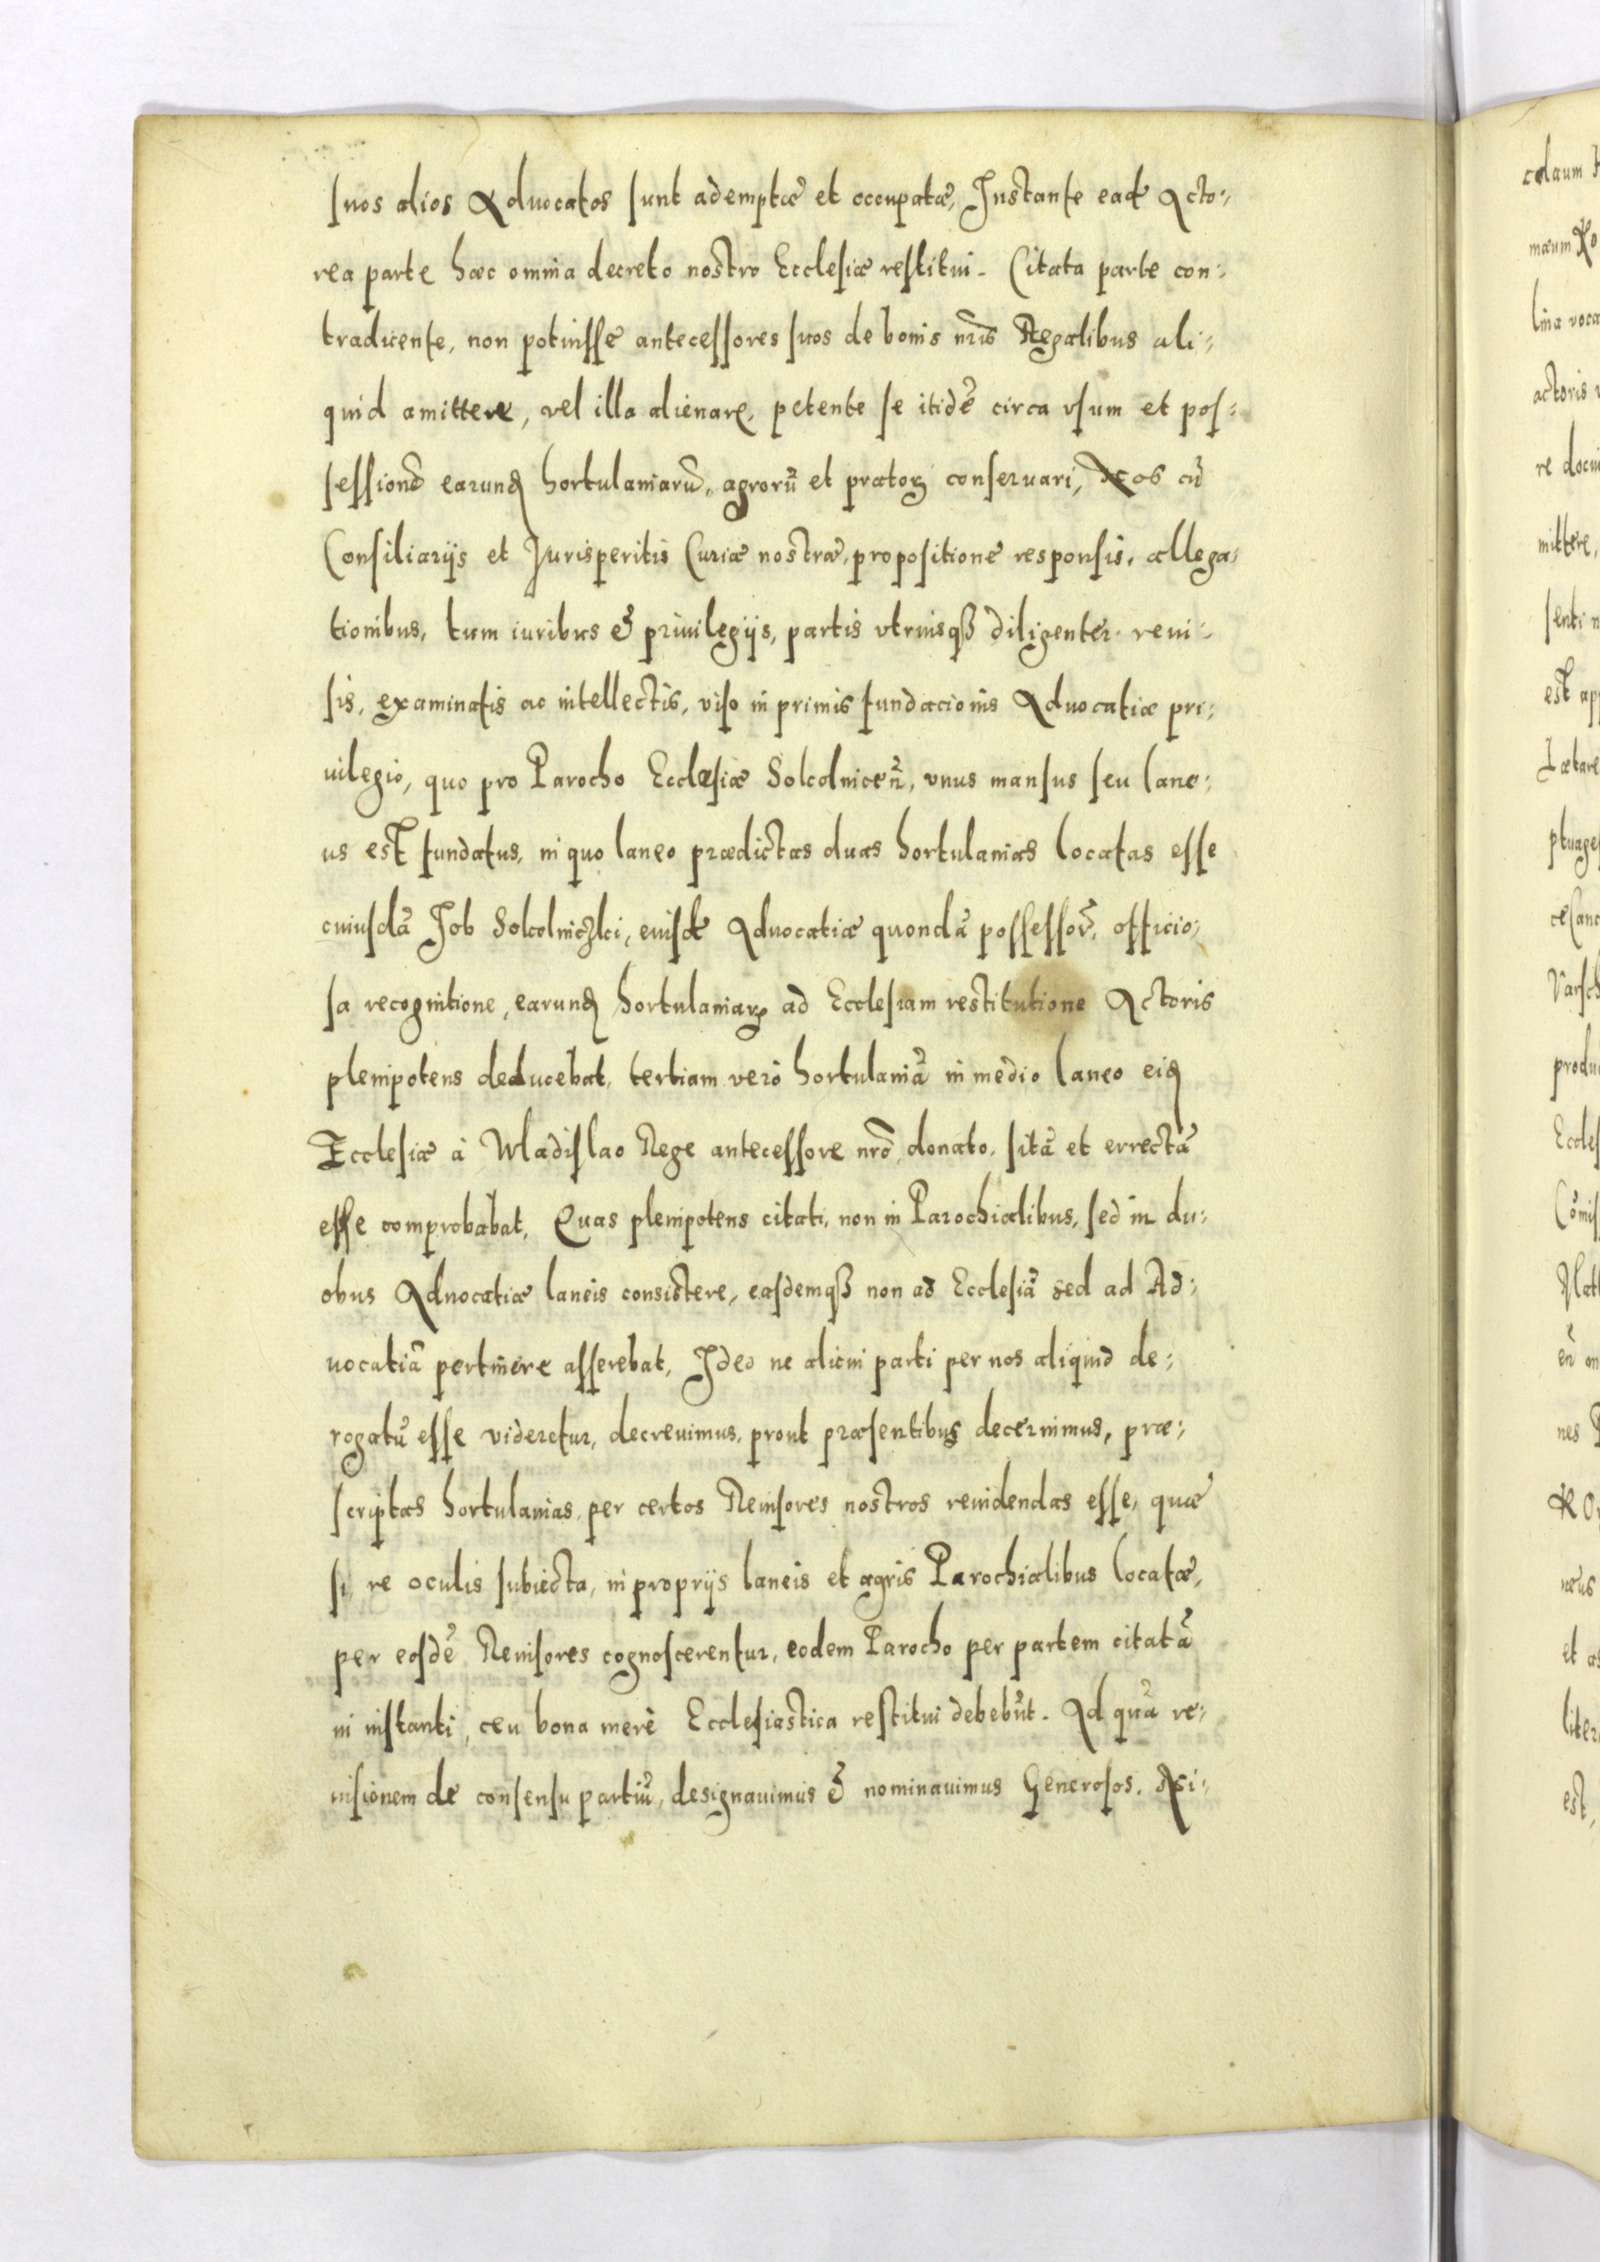 suos alios Aduocatos sunt ademptæ et occupatæ, Instante eadē Acto:
rea parte hæc omnia decreto nostro Ecclesiæ restitui. Citata parte con:
tradicente, non potuisse antecessores suos de bonis nr̄is Regalibus ali:
quid amittere, vel illa alienare, petente se itidē circa vsum et pos:
sessionē earunđ hortulaniarū, agrorū et pratoꝝ conseruari, Nos cū
Consiliarijs et Jurisperitis Curiæ nostræ, propositione responsis, allega:
tionibus, tum iuribus & priuilegijs, partis vtriusqꝫ diligenter reui:
sis, examinatis ac intellectis, viso in primis fundacionis Aduocatiæ pri:
uilegio, quo pro Parocho Ecclesiæ Sokolniceñ, vnus mansus seu lane:
us est fundatus, in quo laneo prædictas duas hortulanias locatas esse
cuiusdā Job Sokolniczki, eiusdē Aduocatiæ quondā possessor̄, officio:
sa recognitione, earunđ hortulaniaꝝ ad Ecclesiam restitutione Actoris
plenipotens deducebat, tertiam verò hortulaniā in medio laneo eiđ
Ecclesiæ à Wladislao Rege antecessore nr̄o donato, sitā et errectā
esse comprobabat, Quas plenipotens citati, non in Parochialibus, sed in du:
obus Aduocatiæ laneis consistere, easdemqꝫ non ad Ecclesiā sed ad Ad:
uocatiā pertinere asserebat, Ideo ne alicui parti per nos aliquid de:
rogatū esse videretur, decreuimus, prout præsentibus decernimus, præ:
scriptas hortulanias, per certos Reuisores nostros reuidendas esse, quæ
si, re oculis subiecta, in proprijs laneis et agris Parochialibus locatæ,
per eosdē Reuisores cognoscerentur, eodem Parocho per partem citatā
in instanti, ceu bona merè Ecclesiastica restitui debebūt. Ad quā re:
uisionem de consensu partiū, designauimus & nominauimus Generosos, Ni: